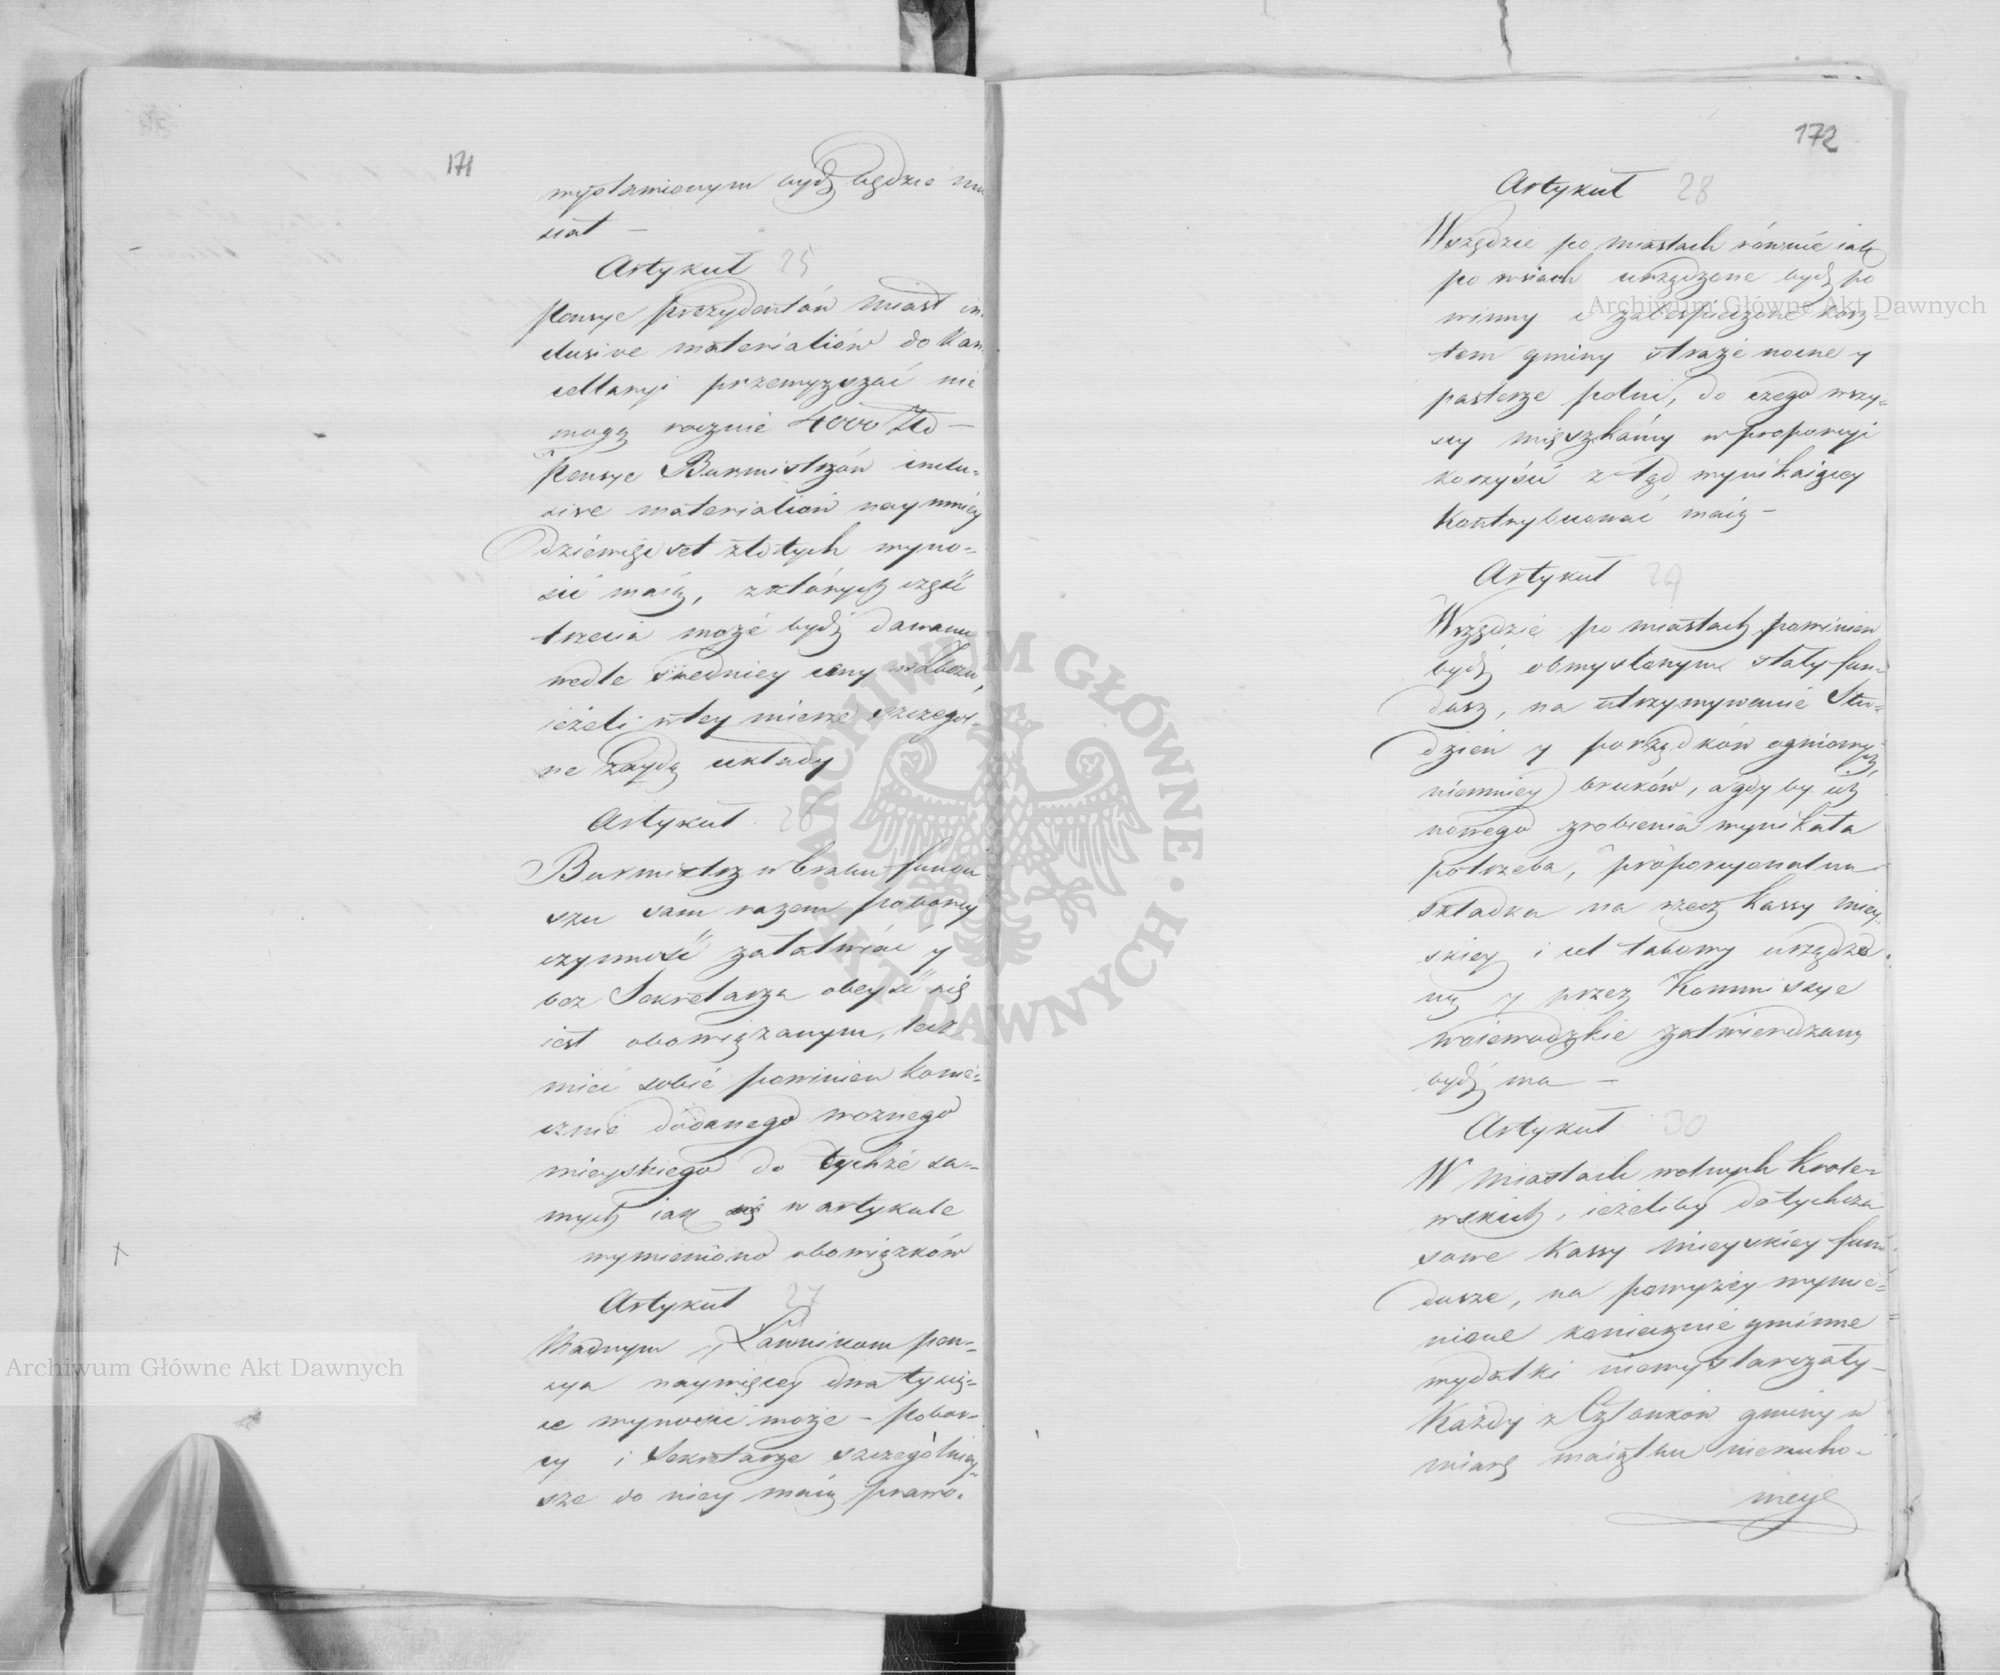 171
wystawionym bydź będzie mu
siał —
Artykuł 25
Pensye prezydentów miast in
clusive materialiów do Kan
cellaryi przewyższać nie
mogą rocznie 4000 Złł —
Pensye Burmistrzów inclu-
sive materialiów naymniey
dziewięćset złotych wyno-
sić maią, z których część
trzecia może bydź dawana
wedle średniey ceny w zbożu,
ieżeli w tey mierze szczegół-
ne zaydą układy
Artykuł 26
Burmistrz w braku fundu
szu sam razem poborcy
czynność załatwiać y
bez Sekretarza obeyść się
iest obowiązanym, lecz
mieć sobie powinien konie-
cznie dodanego woznego
mieyskiego do tychże sa-
mych iak się w artykule
wymieniono obowiązków
Artykuł 27
Radnym y Ławnikom pen-
sya naywięcey dwa tysią-
ce wynosić może – Pobor-
cy i Sekretarze szczególniey-
sze do niey maią prawo.
172
Artykuł 28
Wszędzie po miastach równie iak
po wsiach urządzone bydź po
winny i zabespieczone kosz-
tem gminy straże nocne y
pasterze polni, do czego wszy-
scy mięszkańcy w proporcyi
korzyści z tąd wynikaiącey
kontrybuować maią –
Artykuł 29
Wszędzie po miastach powinien
bydź obmyślonym stały fun-
dusz, na utrzymywanie Stu-
dzien y porządków ogniowych,
niemniey bruków, a gdyby ich
nowego zrobienia wynikała
potrzeba, proporcyonalna
składka na rzecz kassy miey-
skiey i cel takowy urządzo
ną y przez Kommissye
Woiewodzkie zatwierdzaną
bydź ma –
Artykuł 30
W miastach wolnych Krolew
wskich, ieżeliby dotychcza
sowe Kassy mieyskiey fun
dusze, na powyżey wymie-
nione koniecznie gminne
wydatki niewystarczały –
Każdy z Członków gminy w
miarę maiątku nierucho-
mego
Archiwum Główne Akt Dawnych
Archiwum Główne Akt Dawnych
ARCHIWUM GŁÓWNE AKT DAWNYCH